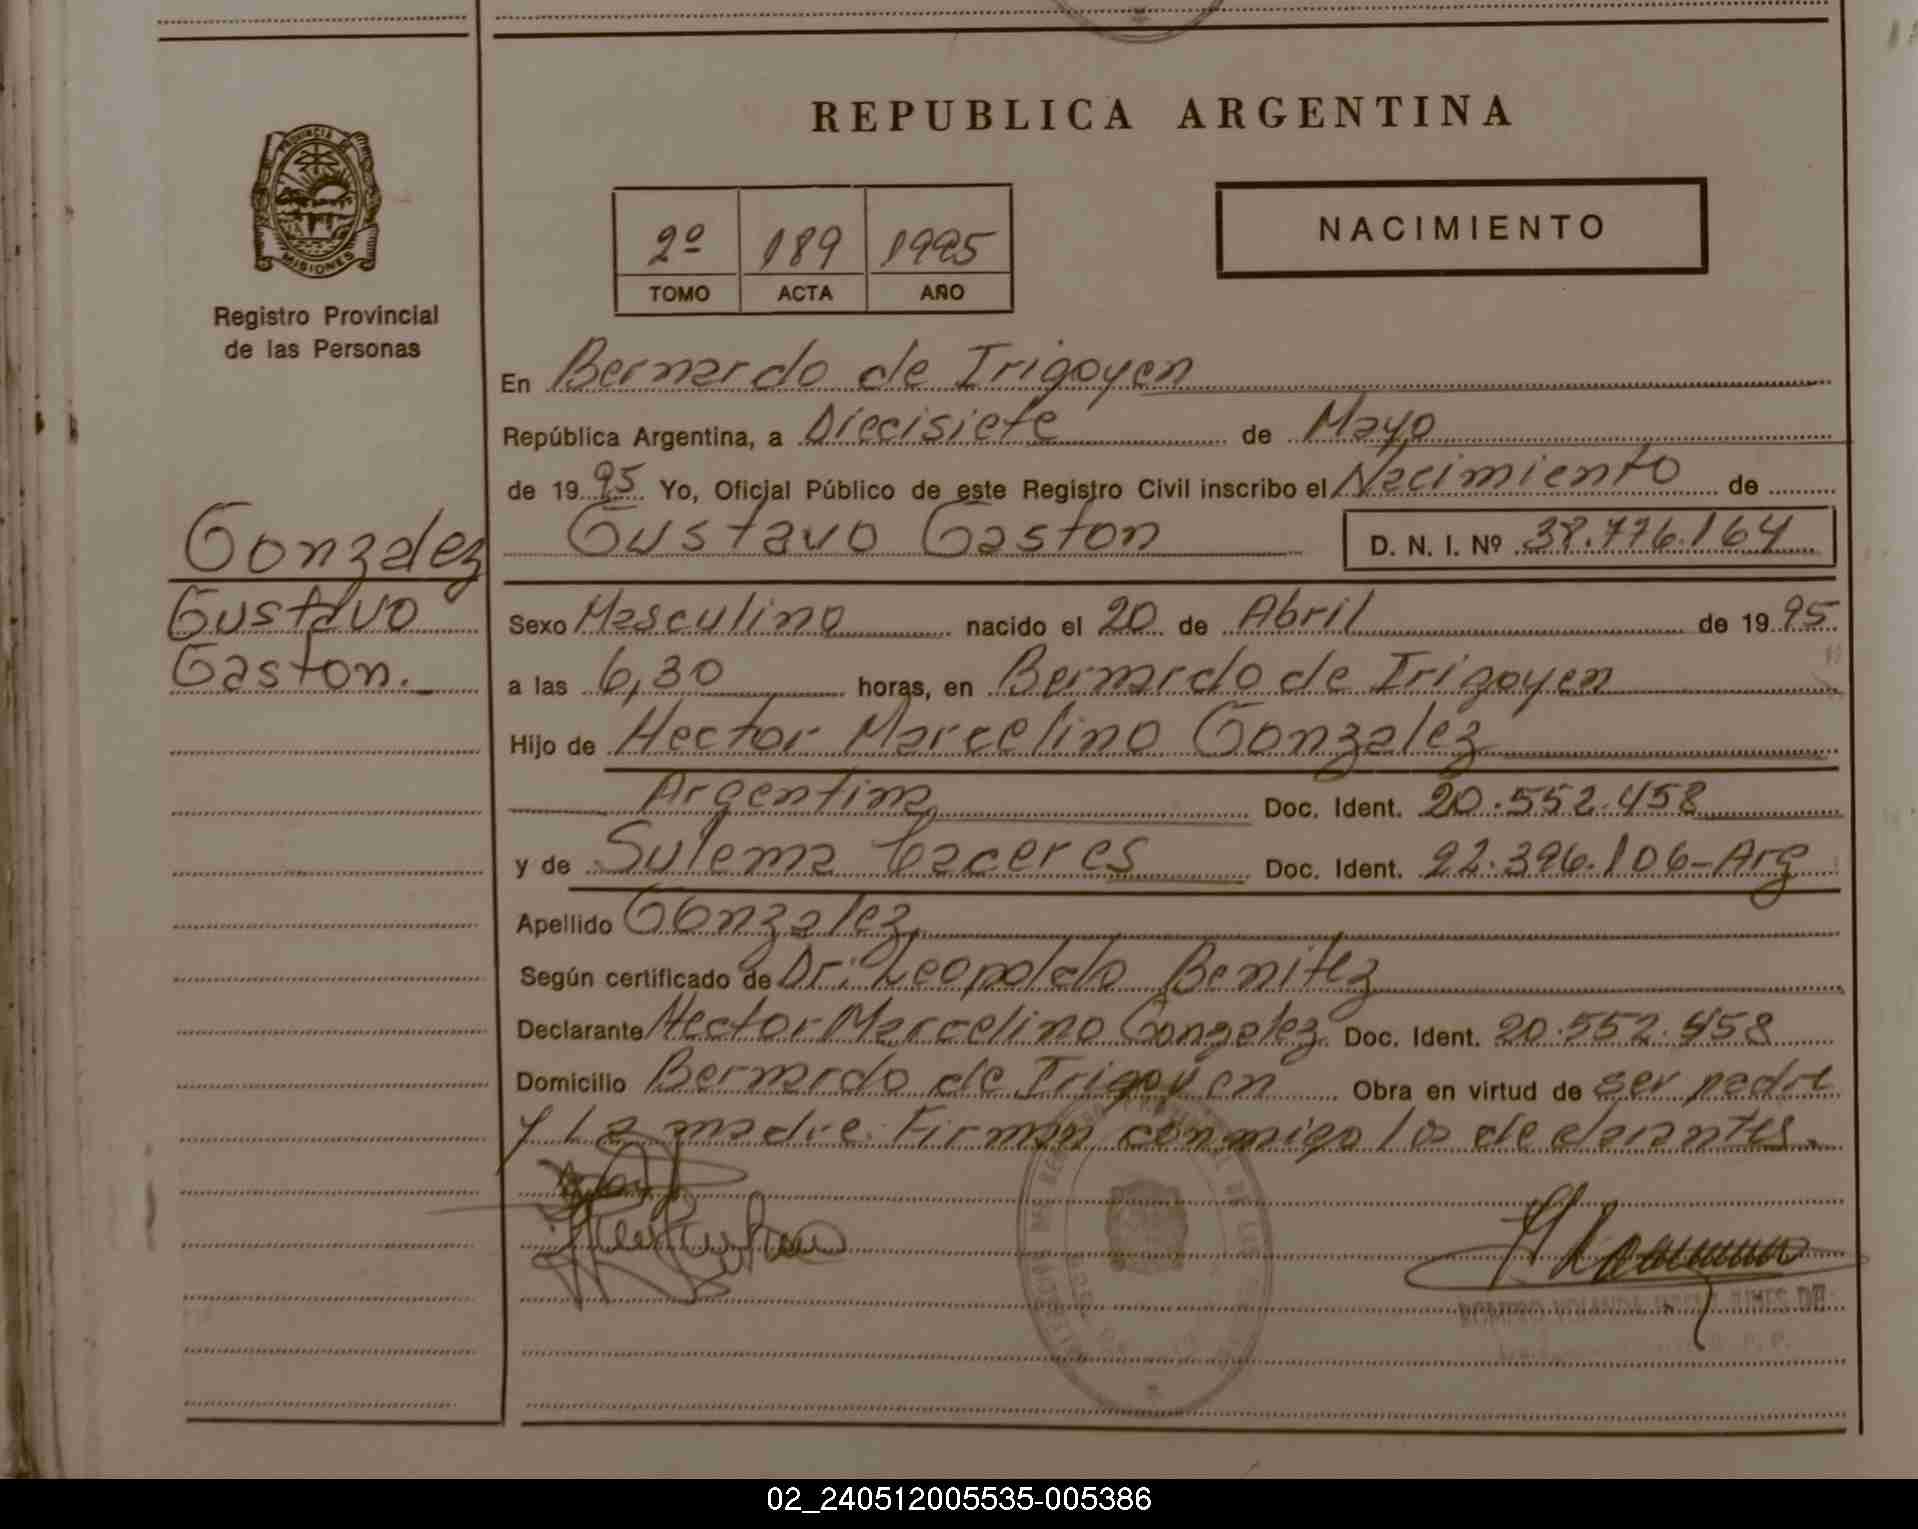 REPUBLICA ARGENTINA
PROVINCIA DE MISIONES
Registro Provincial
de las Personas
2º 189 1995
TOMO ACTA AÑO
NACIMIENTO
En Bernardo de Irigoyen
República Argentina, a Diecisiete de Mayo
de 1995 Yo, Oficial Público de este Registro Civil inscribo el Nacimiento de
Gustavo Gaston D. N. I. Nº 38.776.164
Gonzalez
Gustavo
Gaston.
Sexo Masculino nacido el 20 de Abril de 1995
a las 6,30 horas, en Bernardo de Irigoyen
Hijo de Hector Marcelino Gonzalez
Argentina Doc. Ident. 20.552.458
y de Sulema Caceres Doc. Ident. 22.396.106-Arg
Apellido Gonzalez
Según certificado de Dr: Leopoldo Benitez
Declarante Hector Marcelino Gonzalez Doc. Ident. 20.552.458
Domicilio Bernardo de Irigoyen Obra en virtud de ser padre
y La madre. Firman conmigo los declarantes.
02_240512005535-005386